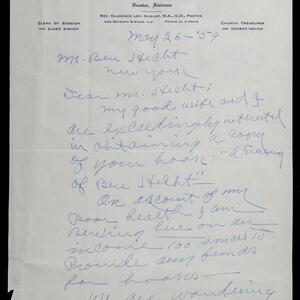 Decatur, Alabama
CLERK OF SESSION
REV. CLARENCE LEVI SHELBY, M.A., D.D., PASTOR
CHURCH TREASURER
May 26-'59
Mr. Ben Hecht
New York
Dear Mr. Hecht:
My good wife and I
are exceedingly interested
in obtaining a copy
of your book: "A Treasury
of Ben Hecht"
On account of my
poor health I am
serving here on an
income too small to
provide any funds
for books.
We are wondering